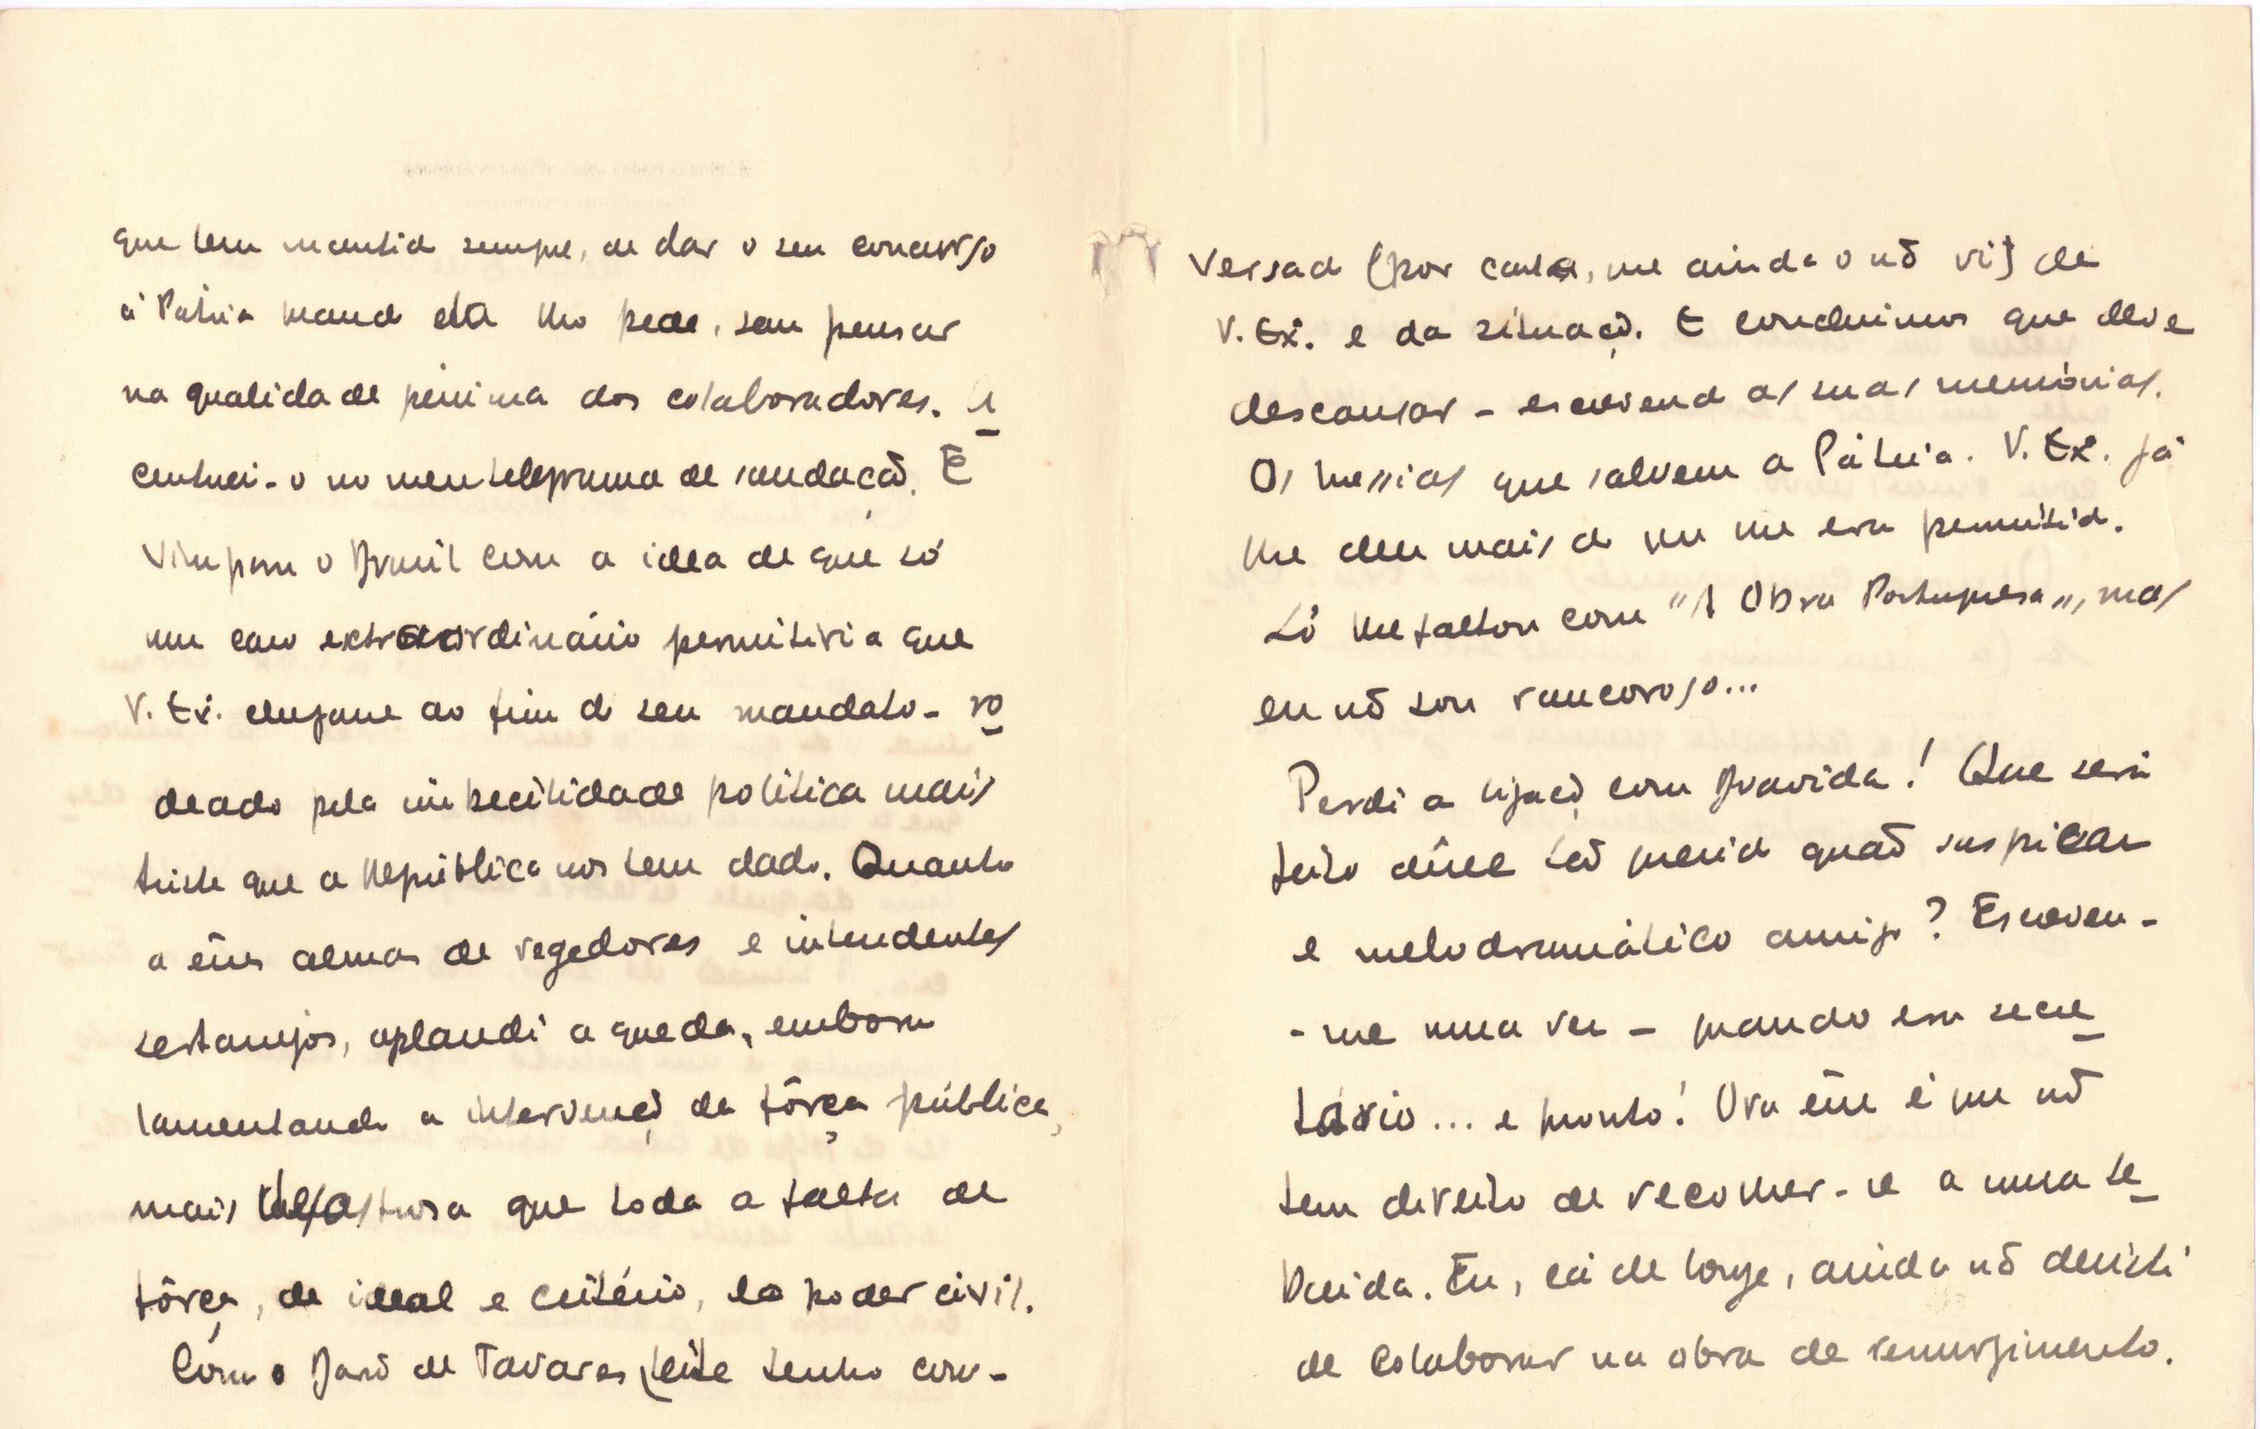 que tem mantido sempre, de dar o seu concurso
á Pátria quando esta lho pede, sem pensar
na qualidade péssima dos colaboradores. A
centuei-o no meu telegrama de saudação. E
vim para o Brasil com a idea de que só
um caso extraordinário permitiria que
V. Ex. chegasse ao fim do seu mandato - ro
deado pela imbecilidade politica mais
triste que a República nos tem dado. Quanto
a êsses almas de regedores e intendentes
sertanejos, aplaudi a queda, embora
lamentando a intervenção da fôrça pública,
mais desastrosa que toda a falta de
fôrça, de ideal e critério, do poder civil.
Com o Barão de Tavares Leite tenho con-
versado (por carta, que ainda o não vi) de
V. Ex. e da situação. E concluimos que deve
descansar - escrevendo as suas memórias.
Os messias que salvem a Pátria. V. Ex. já
lhe deu mais do que lhe era permitido.
Só lhe faltou com "A Obra Portuguesa", mas
eu não sou rancoroso...
Perdi a ligação com Bravida! Que será
feito dêsse tão querido quão suspicaz
e melodramático amigo? Escreveu-
-me uma vez - quando era secre
tário... e pronto! Ora êsse é que não
tem direito de recolher-se a uma te
baida. Eu, cá de longe, ainda não desisti
de colaborar na obra de ressurgimento.